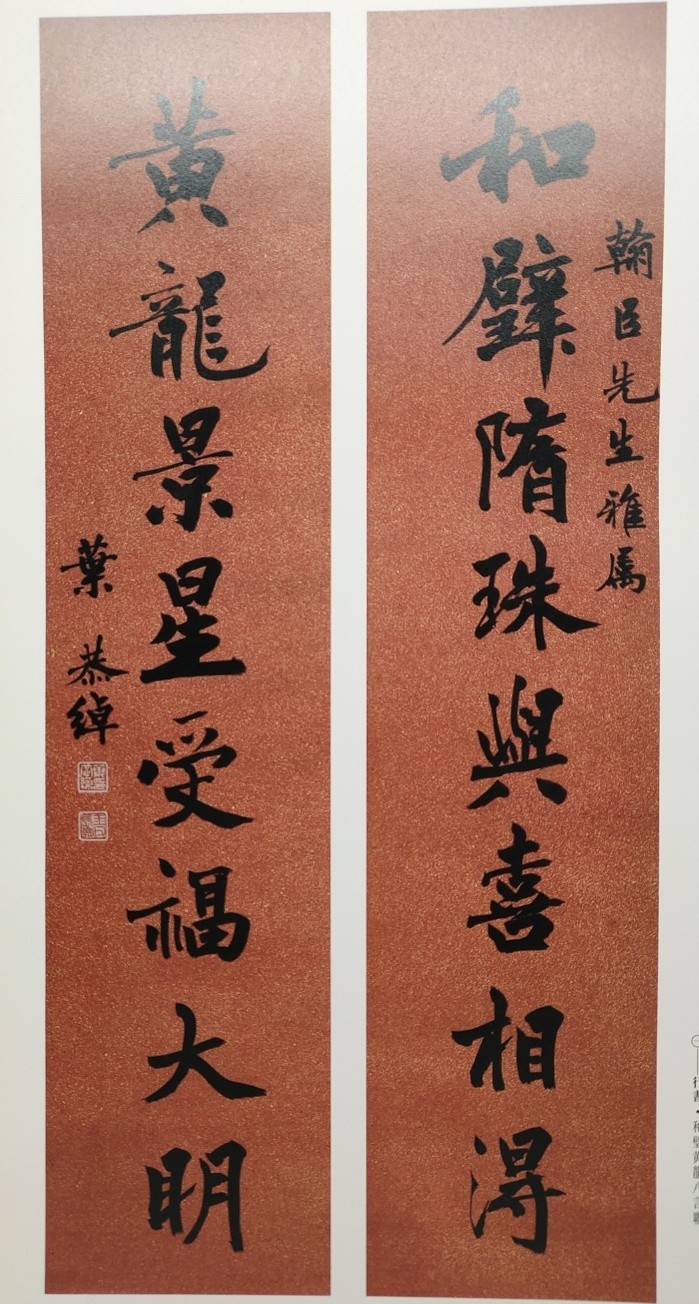 和璧隋珠與喜相得
翰臣先生雅屬
黃龍景星受福大明
葉恭綽
行書·和璧黃龍八言聯